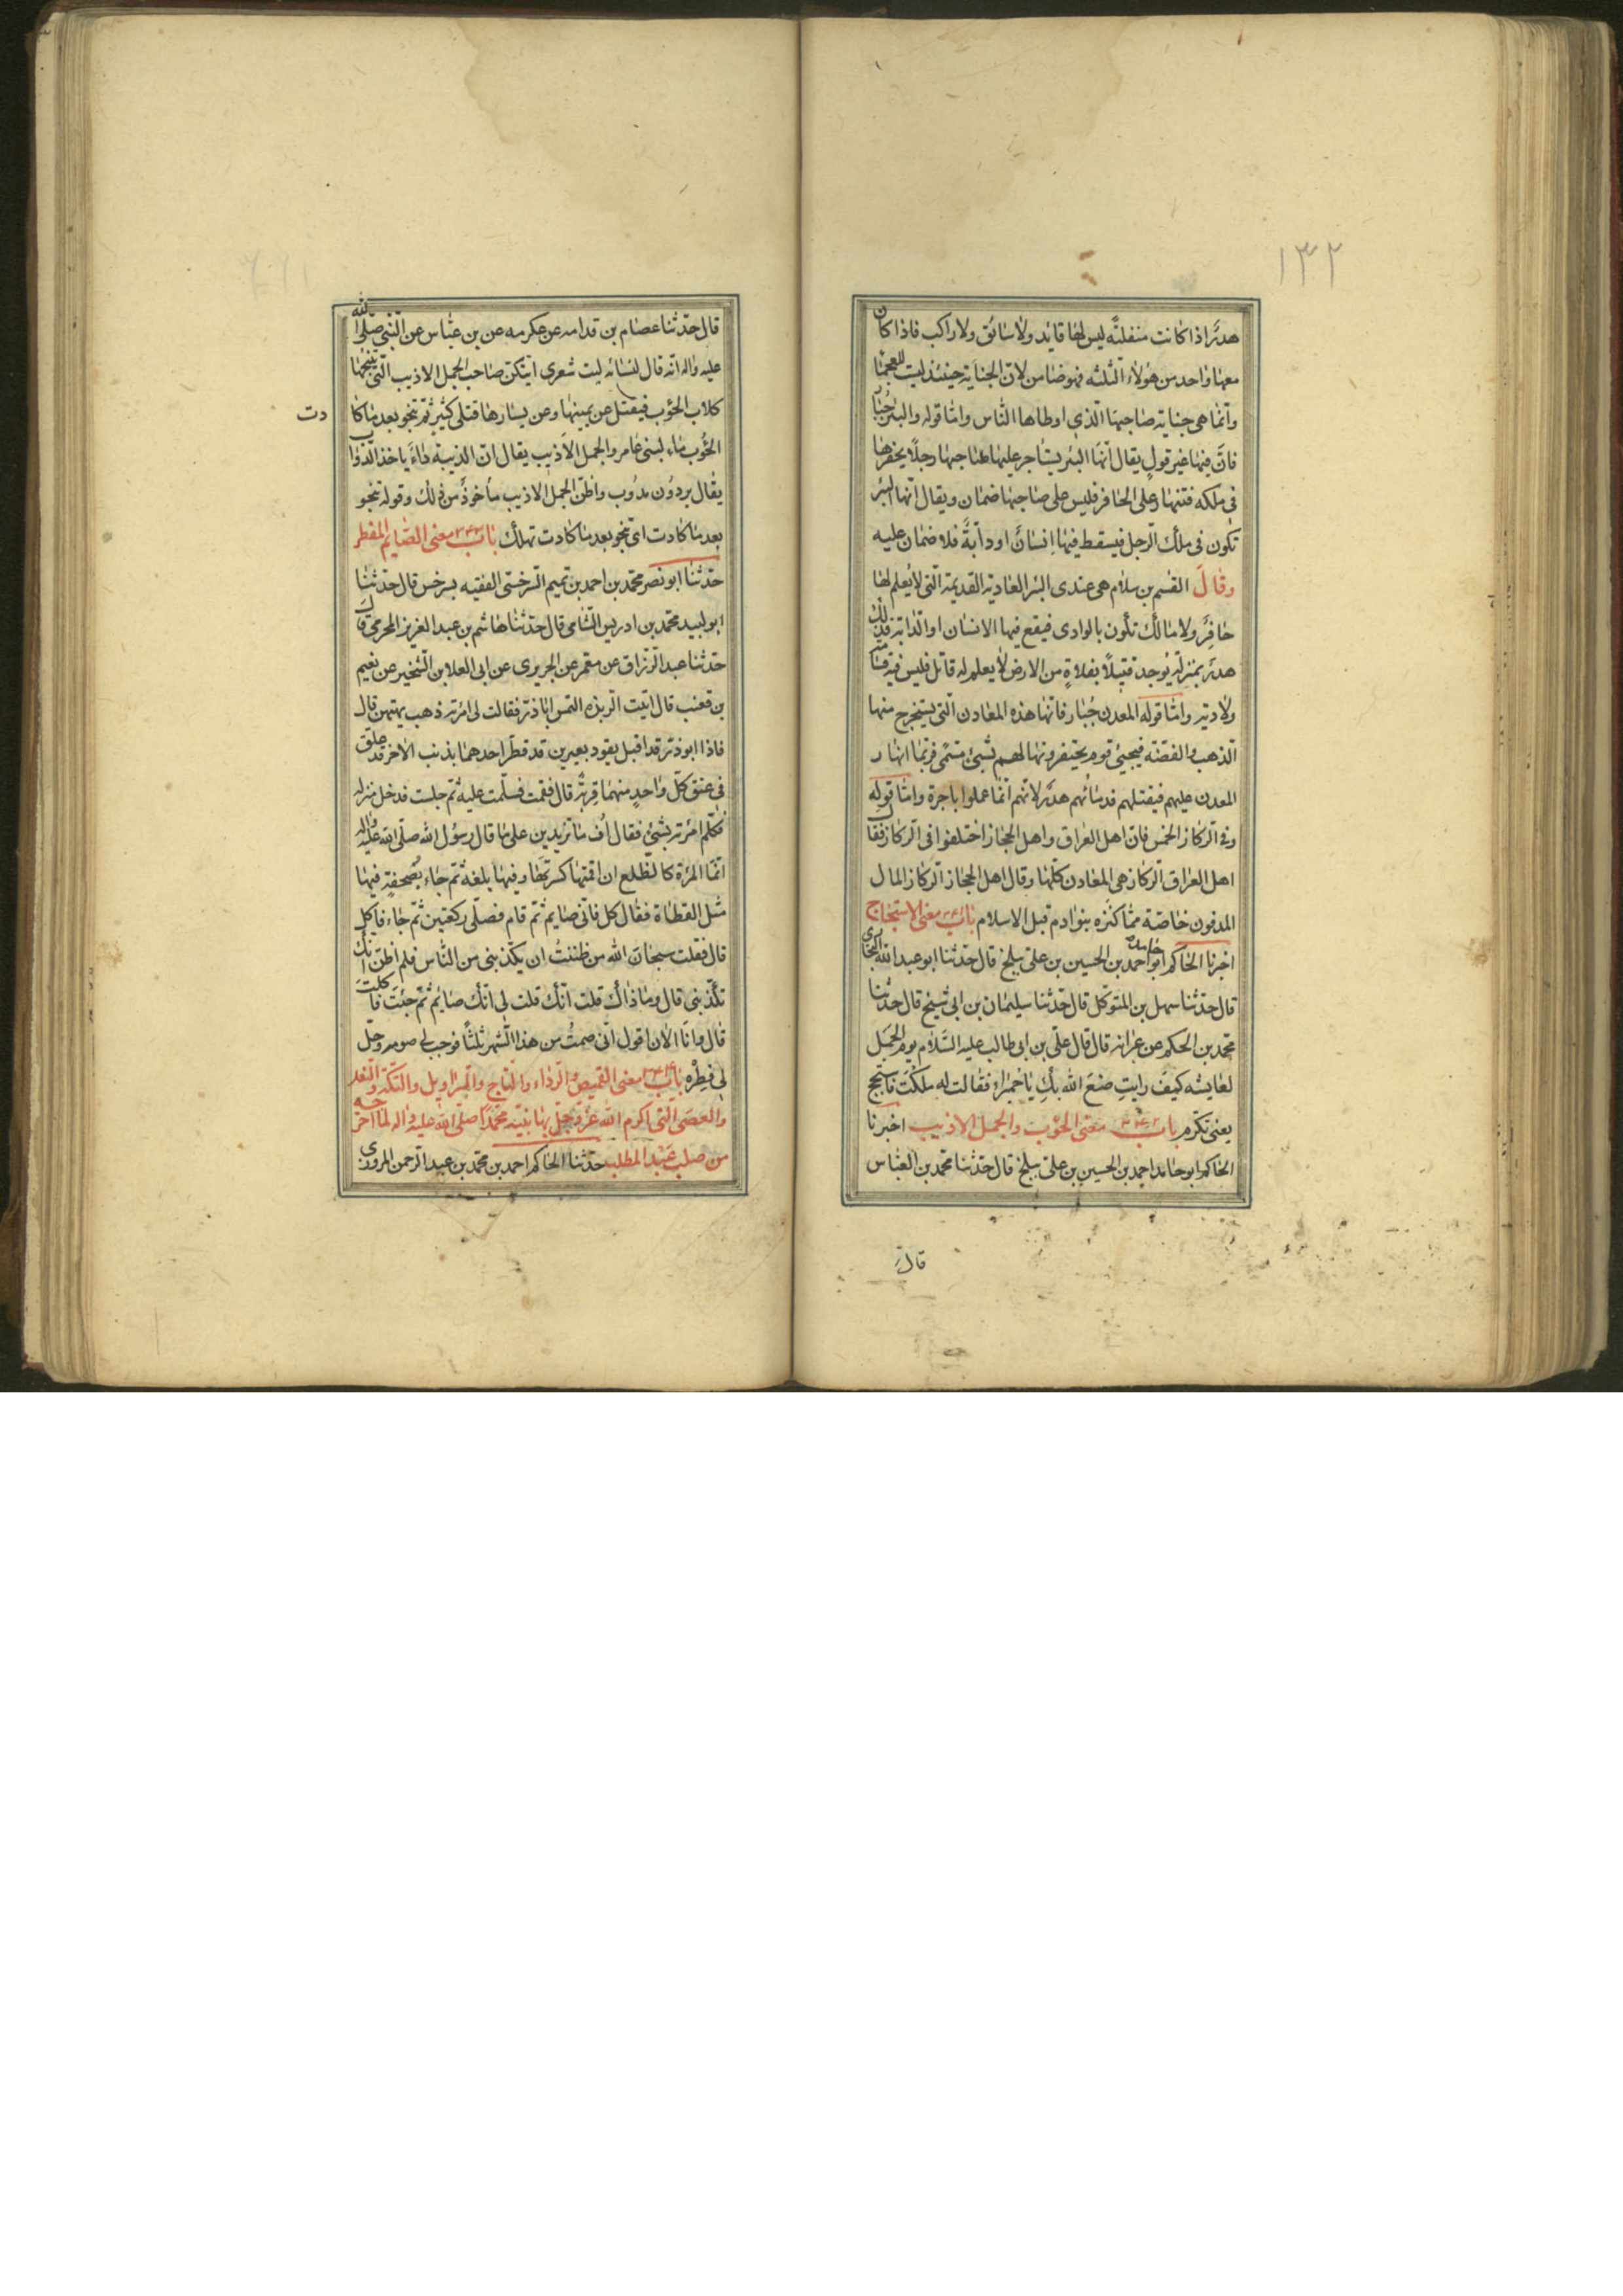 ١٣٢
هدرًا اذا كانت منفلتة ليس لها قايد ولا سائق ولا راكب فاذا كان
معها واحد من هؤلاء الثلثه فهو ضامن لان الجناية حينئذ ليت للعجما
وانما هى جناية صاحبها الذى اوطاها الناس واما قوله والبئر جُبار
فان فيها غير قول يقال انها البئر يستاجر عليها صاحبها رجلا يحفرها
فى ملكه فتنهار على الحافر فليس على صاحبها ضمان ويقال انها البئر
تكون فى ملك الرجل فيسقط فيها انسان او دآبة فلا ضمان عليه
وقال القسم بن سلام هى عندى البئر العادية القديمة التى لا يُعلم لها
حافر ولا مالك تكون بالوادى فيقع فيها الانسان او الدابة فذلك
هدر بمنزلة يوجد قتيلًا بفلاةٍ من الارض لا يعلم له قاتل فليس فيه قسامة
ولا دية واما قوله المعدن جُبار فانها هذه المعادن التى يستخرج منها
الذهب والفضّة فيجيئ قوم يحتفرونها لهم بشيئ مسمّى فربما انهار
المعدن عليهم فيقتلهم فدمائهم هدر لانهم انما عملوا باجرة واما قوله
وفى الركاز الخمس فان اهل العراق واهل الحجاز اختلفوا فى الركاز فقال
اهل العراق الركاز هى المعادن كلها وقال اهل الحجاز الركاز المال
المدفون خاصّة مما كنزه بنو ادم قبل الاسلام باب معنى الاستجاج
اخبرنا الحاكم ابو حامد احمد بن الحسين بن على ببلخ قال حدثنا ابو عبد الله البخارى
قال حدثنا سهل بن المتوكل قال حدثنا سليمان بن ابى شيخ قال حدثنا
محمد بن الحكم عن عوانه قال قال على بن ابى طالب عليه السلام يوم الجمل
لعايشه كيف رايتِ صنعَ الله بكِ يا حميراء فقالت له ملكتَ فاسجح
يعنى تكرم باب ٣٤٢ معنى الحؤب والجمل الاذيب اخبرنا
الحاكم ابو حامد احمد بن الحسين بن على ببلخ قال حدثنا محمد بن العباس
قال
قال حدثنا عصام بن قدامه عن عكرمه عن بن عباس عن النبى صلى الله
عليه واله انه قال لنسائه ليت شعرى ايتكن صاحب الجمل الاذيب التى تنبحها
كلاب الحؤب فيقتل عن يمينها وعن يسارها قتلى كثير ثم تنجو بعد ما كا
دت
الحؤب ماء لبنى عامر والجمل الاذيب يقال ان الذيبة داء ياخذ الدواب
يقال بردون مدؤب واظن الجمل الاذيب ماخوذ من ذلك وقوله تنجو
بعد ما كادت اى تنجو بعد ما كادت تهلك باب ٣٤٣ معنى الصايم المفطر
حدثنا ابو نصر محمد بن احمد بن تميم السرخسى الفقيه بسرخس قال حدثنا
ابو لبيد محمد بن ادريس الشامى قال حدثنا هاشم بن عبد العزيز المخرمى قال
حدثنا عبد الرزاق عن معمر عن الجريرى عن ابى العلا بن الشخير عن نعيم
بن قعنب قال اتيت الربذه التمس اباذر فقالت لى امرته ذهب يمتهن قال
فاذا ابوذر قد اقبل يقود بعيرين قد قطر احدهما بذنب الاخر قد علق
فى عنق كل واحدٍ منهما قربة قال فقمت فسلمت عليه ثم جلست فدخل منزله
فكلم امرته بشيئ فقال اُف ما تزيدين على ما قال رسول الله صلى الله عليه واله
انما المرة كالظلع ان اقمتها كسرتها وفيها بلغه ثم جاء بصحفةٍ فيها
مثل القطاة فقال كل فانى صايم ثم قام فصلى ركعتين ثم جاء فاكل
قال فقلت سبحان الله من ظننتُ ان يكذبنى من الناس فلم اظن انك
تكذبنى قال وما ذاك قلت انك قلت لى انك صايم ثم جئت فاكلت
قال وانا الان اقول انى صمتُ من هذا الشهر ثلثًا فوجب لى صومه وحل
لى فِطرُه باب ٣٤٤ معنى القميص والرداء والتاج والسراويل والتكة والنعل
والعصى التى اكرم الله عز وجل بها نبيه محمدًا صلى الله عليه واله لما اخرجه
من صلب عبد المطلب حدثنا الحاكم احمد بن محمد بن عبد الرحمن المروزى